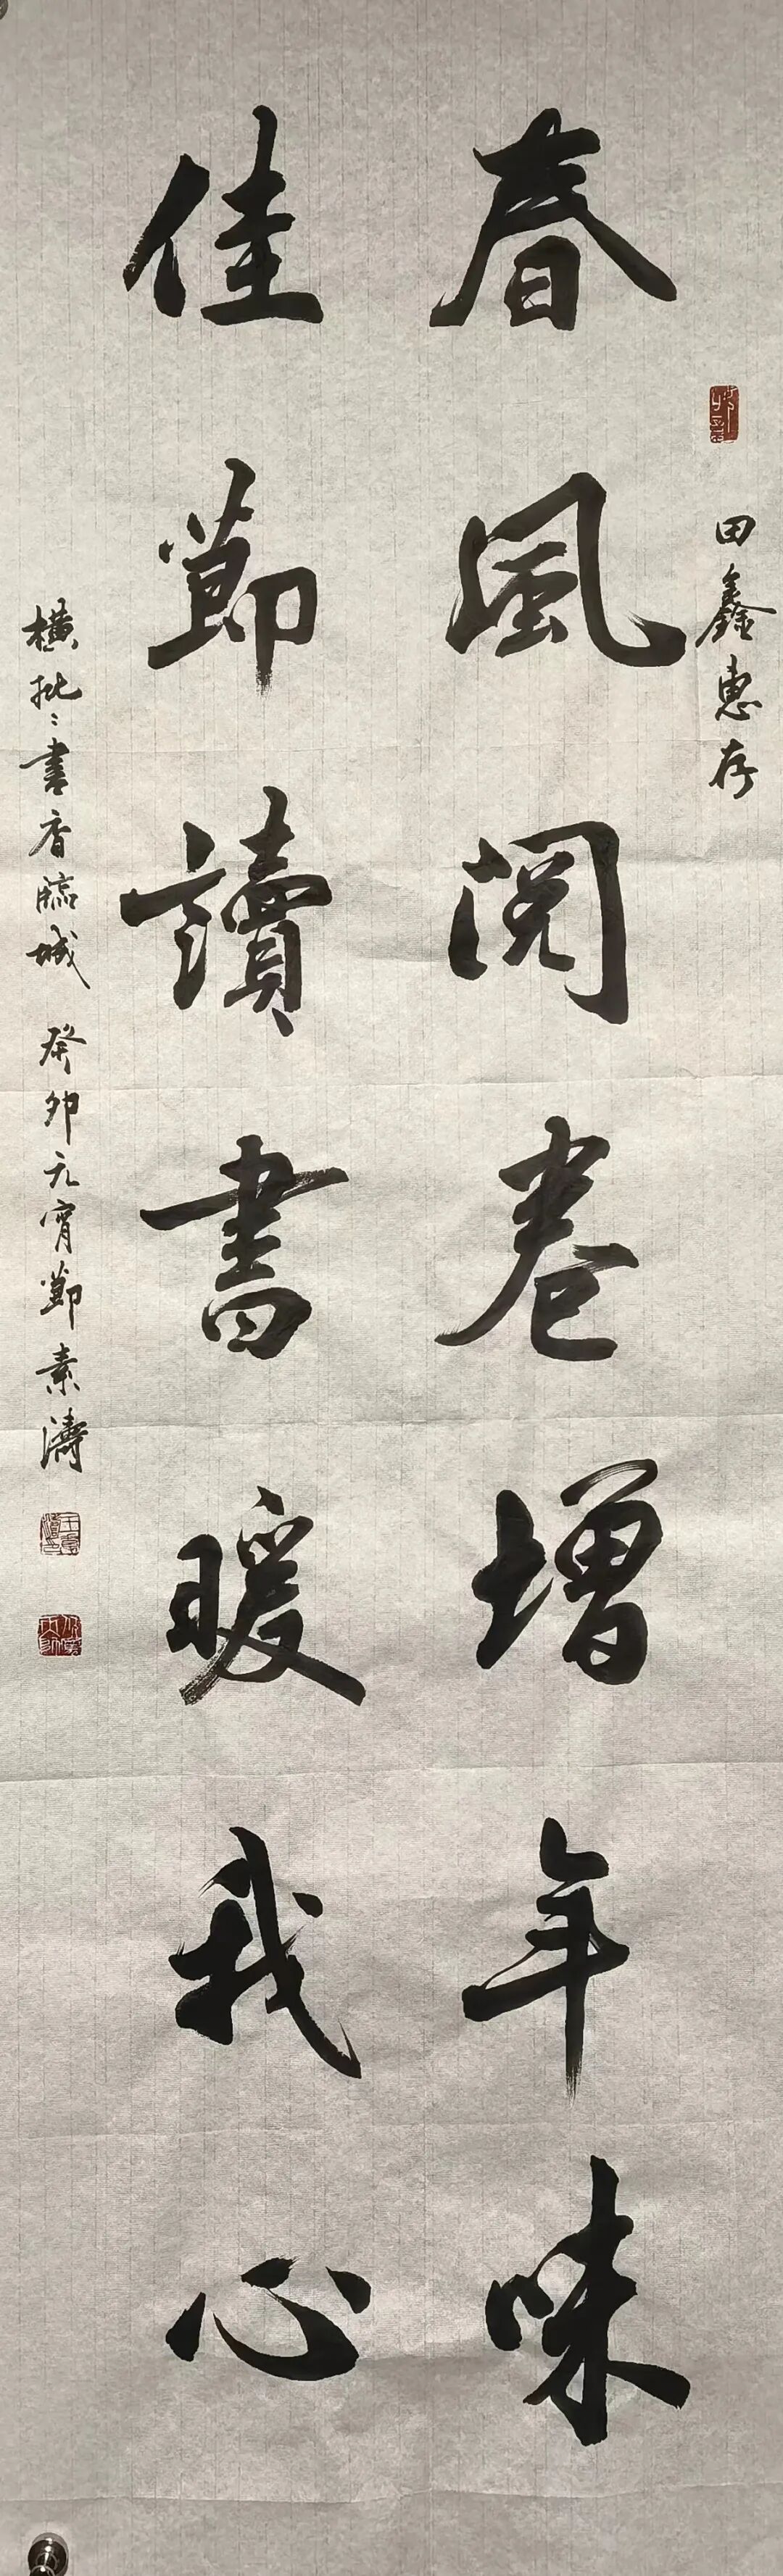 田鑫惠存
春風閱卷增年味
佳節讀書暖我心
橫批：書香臨城 癸卯元宵節 素濤